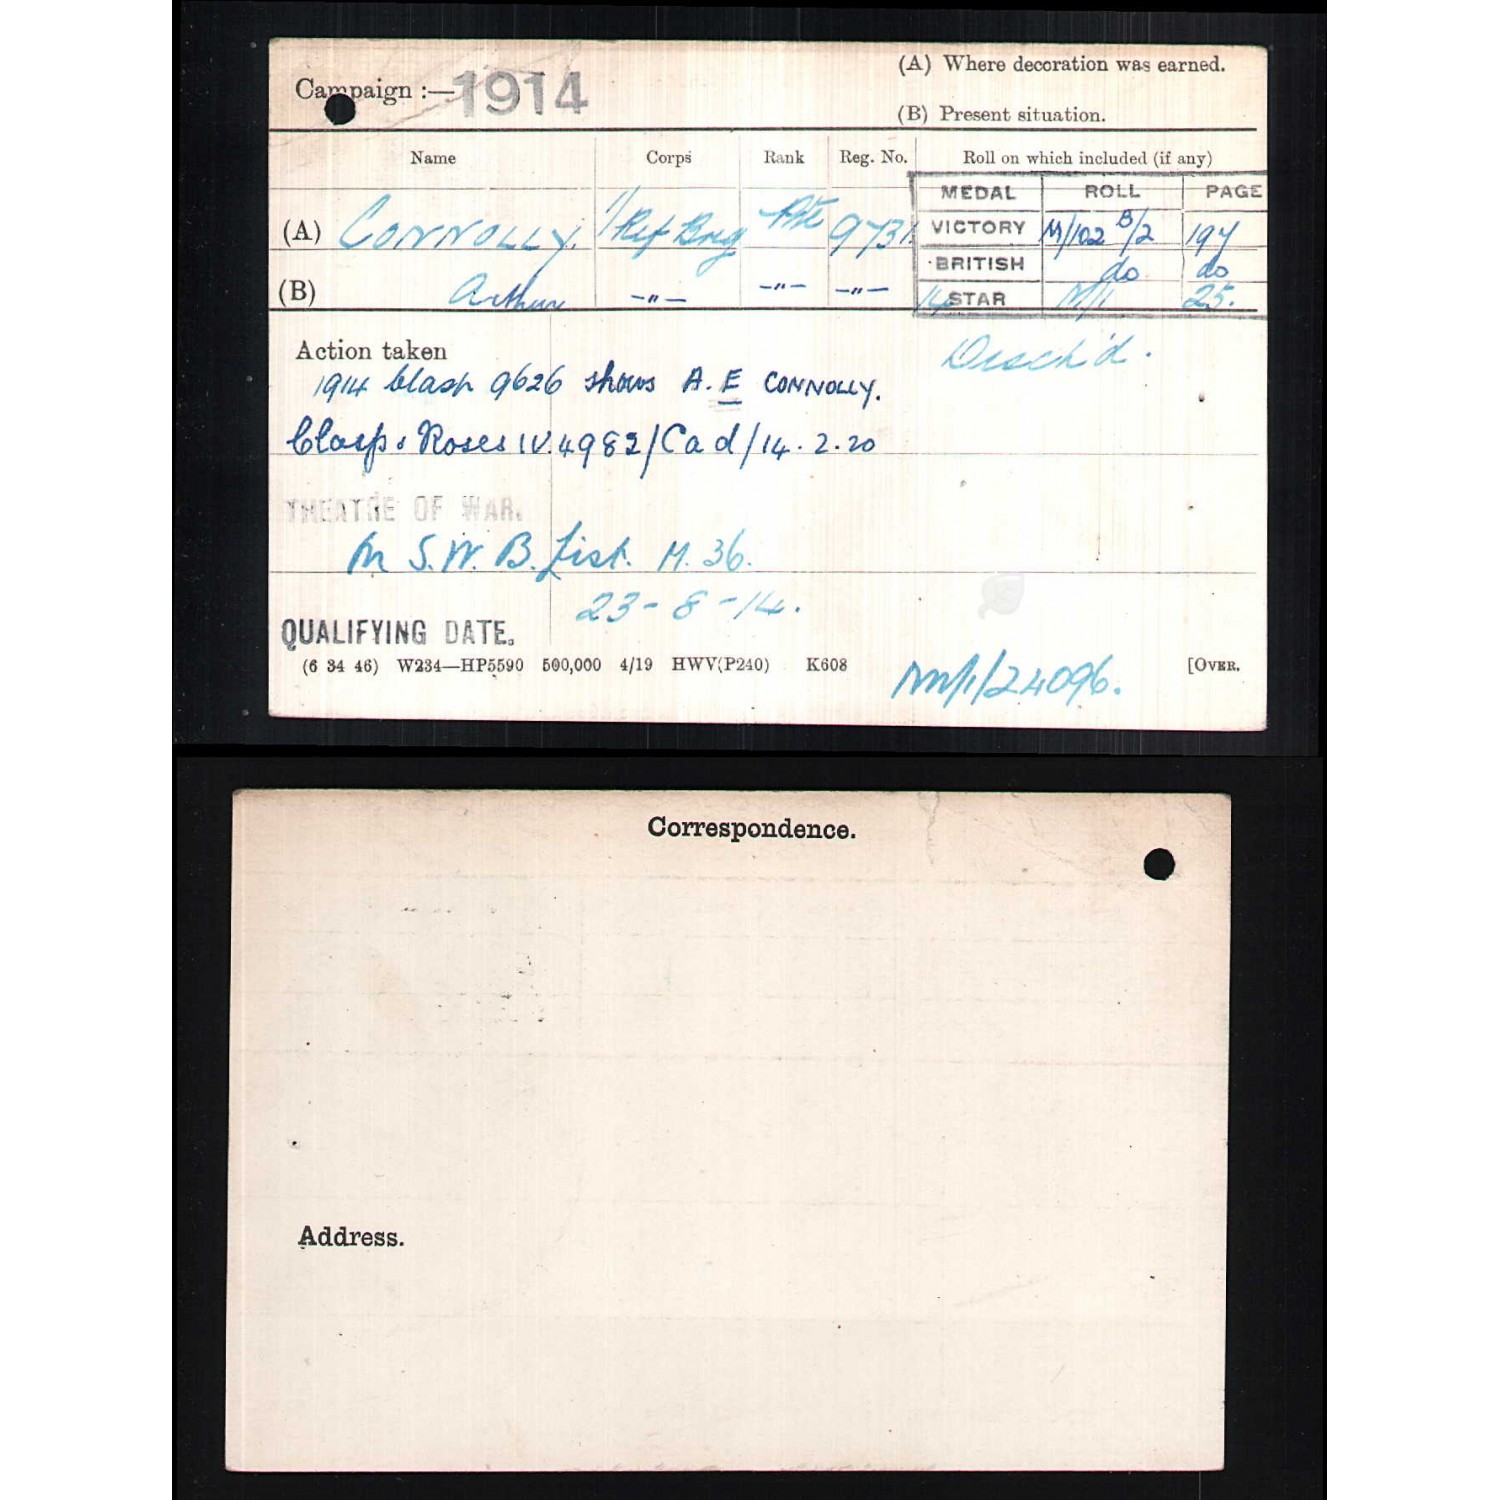 Campaign :— 1914
(A) Where decoration was earned.
(B) Present situation.
Name Corps Rank Reg. No. Roll on which included (if any)
MEDAL ROLL PAGE
(A) CONNOLLY. 1/Rif Brig Pte 9731. VICTORY M/102 B/2 197
BRITISH do do
(B) Arthur —"— —"— —"— 14 STAR M/1 25.
Action taken
Disch'd.
1914 Clasp 9626 shows A. E CONNOLLY.
Clasp & Roses IV. 4982/Cad/14.2.20
THEATRE OF WAR.
In S.W.B. List. M. 36.
23-8-14.
QUALIFYING DATE.
(6 34 46) W234—HP5590 500,000 4/19 HWV(P240) K608
/1/24096.
[OVER.
Correspondence.
Address.